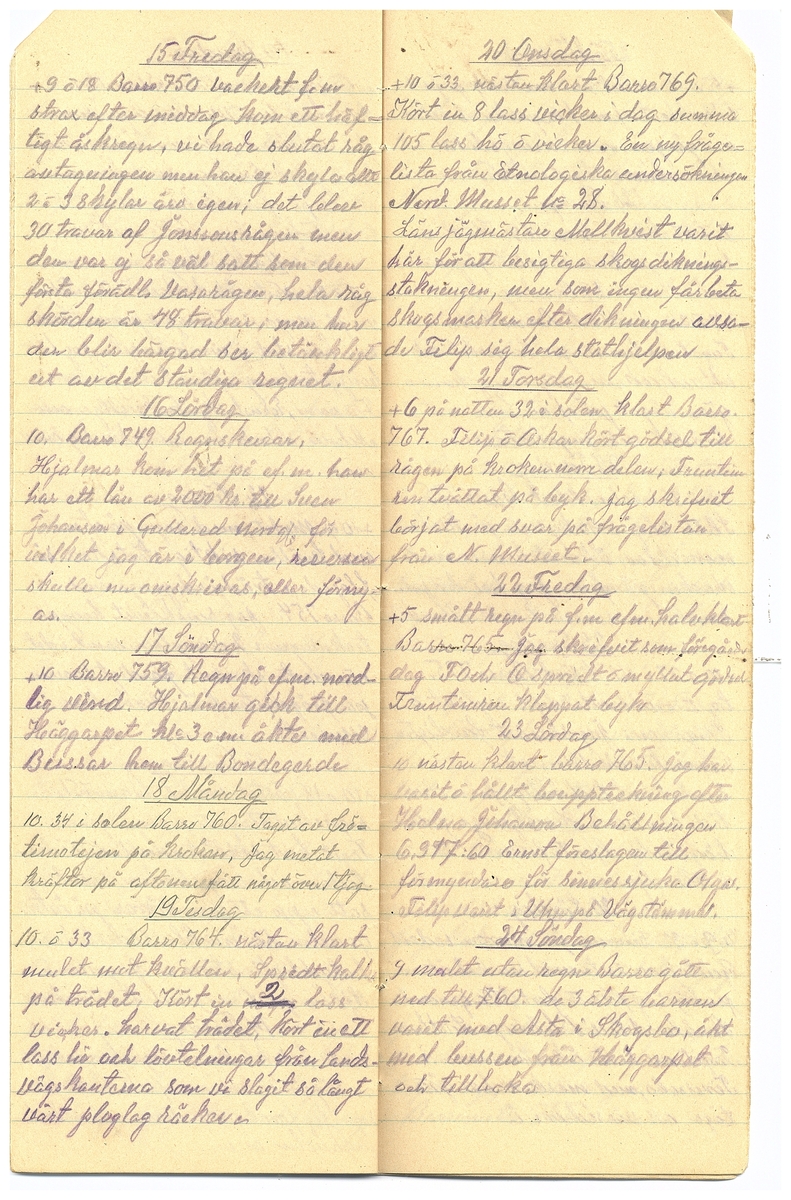 15 Fredag
+9 ö 18 Barro 750 vackert f.m
strax efter middag kom ett häf=
tigt åskregn, vi hade slutat råg
avtagningen men han ej skyla allt
2 ö 3 skylar äro igen; det blev
30 travar af Jonssonsrågen men
den var ej så väl satt som den
första förädl. Vasarågen, hela råg
skörden är 48 travar; men hur
den blir bärgad ser betänkligt
ut av det ständiga regnet.
16 Lördag
10. Barro 749. Regnskurar,
Hjalmar kom hit på ef.m. han
har ett lån av 2000 kr. till Sven
Johanson i Gullered för
vilket jag är i borgen, reversen
skulle nu omskrivas, eller förny-
as.
17 Söndag
+10 Barro 759. Regn på ef.m. nord-
lig vind. Hjalmar geck till
Häggarpet kl. 3 em åkte med
Bussar hem till Bondegerde
18 Måndag
10. 34 i solen Barro 760. Tagit av frö=
timotejen på kroken, Jag metat
kräftor på aftonen fått något över 1 tjog
19 Tisdag
10. ö 33 Barro 764. nästan klart
mulet mot kvällen, Spredt kalk
på trädet, Kört in 2 lass
vicker. harvat trädet, kört in ett
lass hö och lövtelningar från lands-
vägskanterna som vi slagit så långt
vårt ploglag räcker
20 Onsdag
+10 ö 33 nästan klart Barro 769.
Kört in 8 lass vicker i dag summa
105 lass hö ö vicker. En ny fråge=
lista från Etnologiska undersökningen
Nord. Museet № 28.
Länsjägmästare Mellkvist varit
här för att besigtiga skogsdiknings-
stakningen, men som ingen får beta
skogsmarken efter dikningen avsa-
de Filip sig hela stathjelpen
21 Torsdag
+6 på natten 32 i solen klart Barro.
767. Filip ö Oskar kört gödsel till
rågen på kroken norra delen; Fruntim
ren tvättat på byk. jag skrifvit
börjat med svar på frågelistan
från N. Museet.
22 Fredag
+5 smått regn på f.m ef.m. halvklart
Barro 765. Jag skrifvit som förgårs
dag F och O spridt ö myllat gödsel
Fruntimren klappat byk
23 Lördag
10 nästan klart barro 765. jag har
varit ö hållt bouppteckning efter
Helna Johanson Behållningen
6,347.60 Ernst föreslagen till
förmyndare för sinnessjuka Olga.
Filip varit i Upp på Vägstämma.
24 Söndag
9 mulet utan regn Barro gått
ned till 760. de 3 älste barnen
varit med Asta i Skogsbo, åkt
med bussen från Häggarpet
och tillbaka